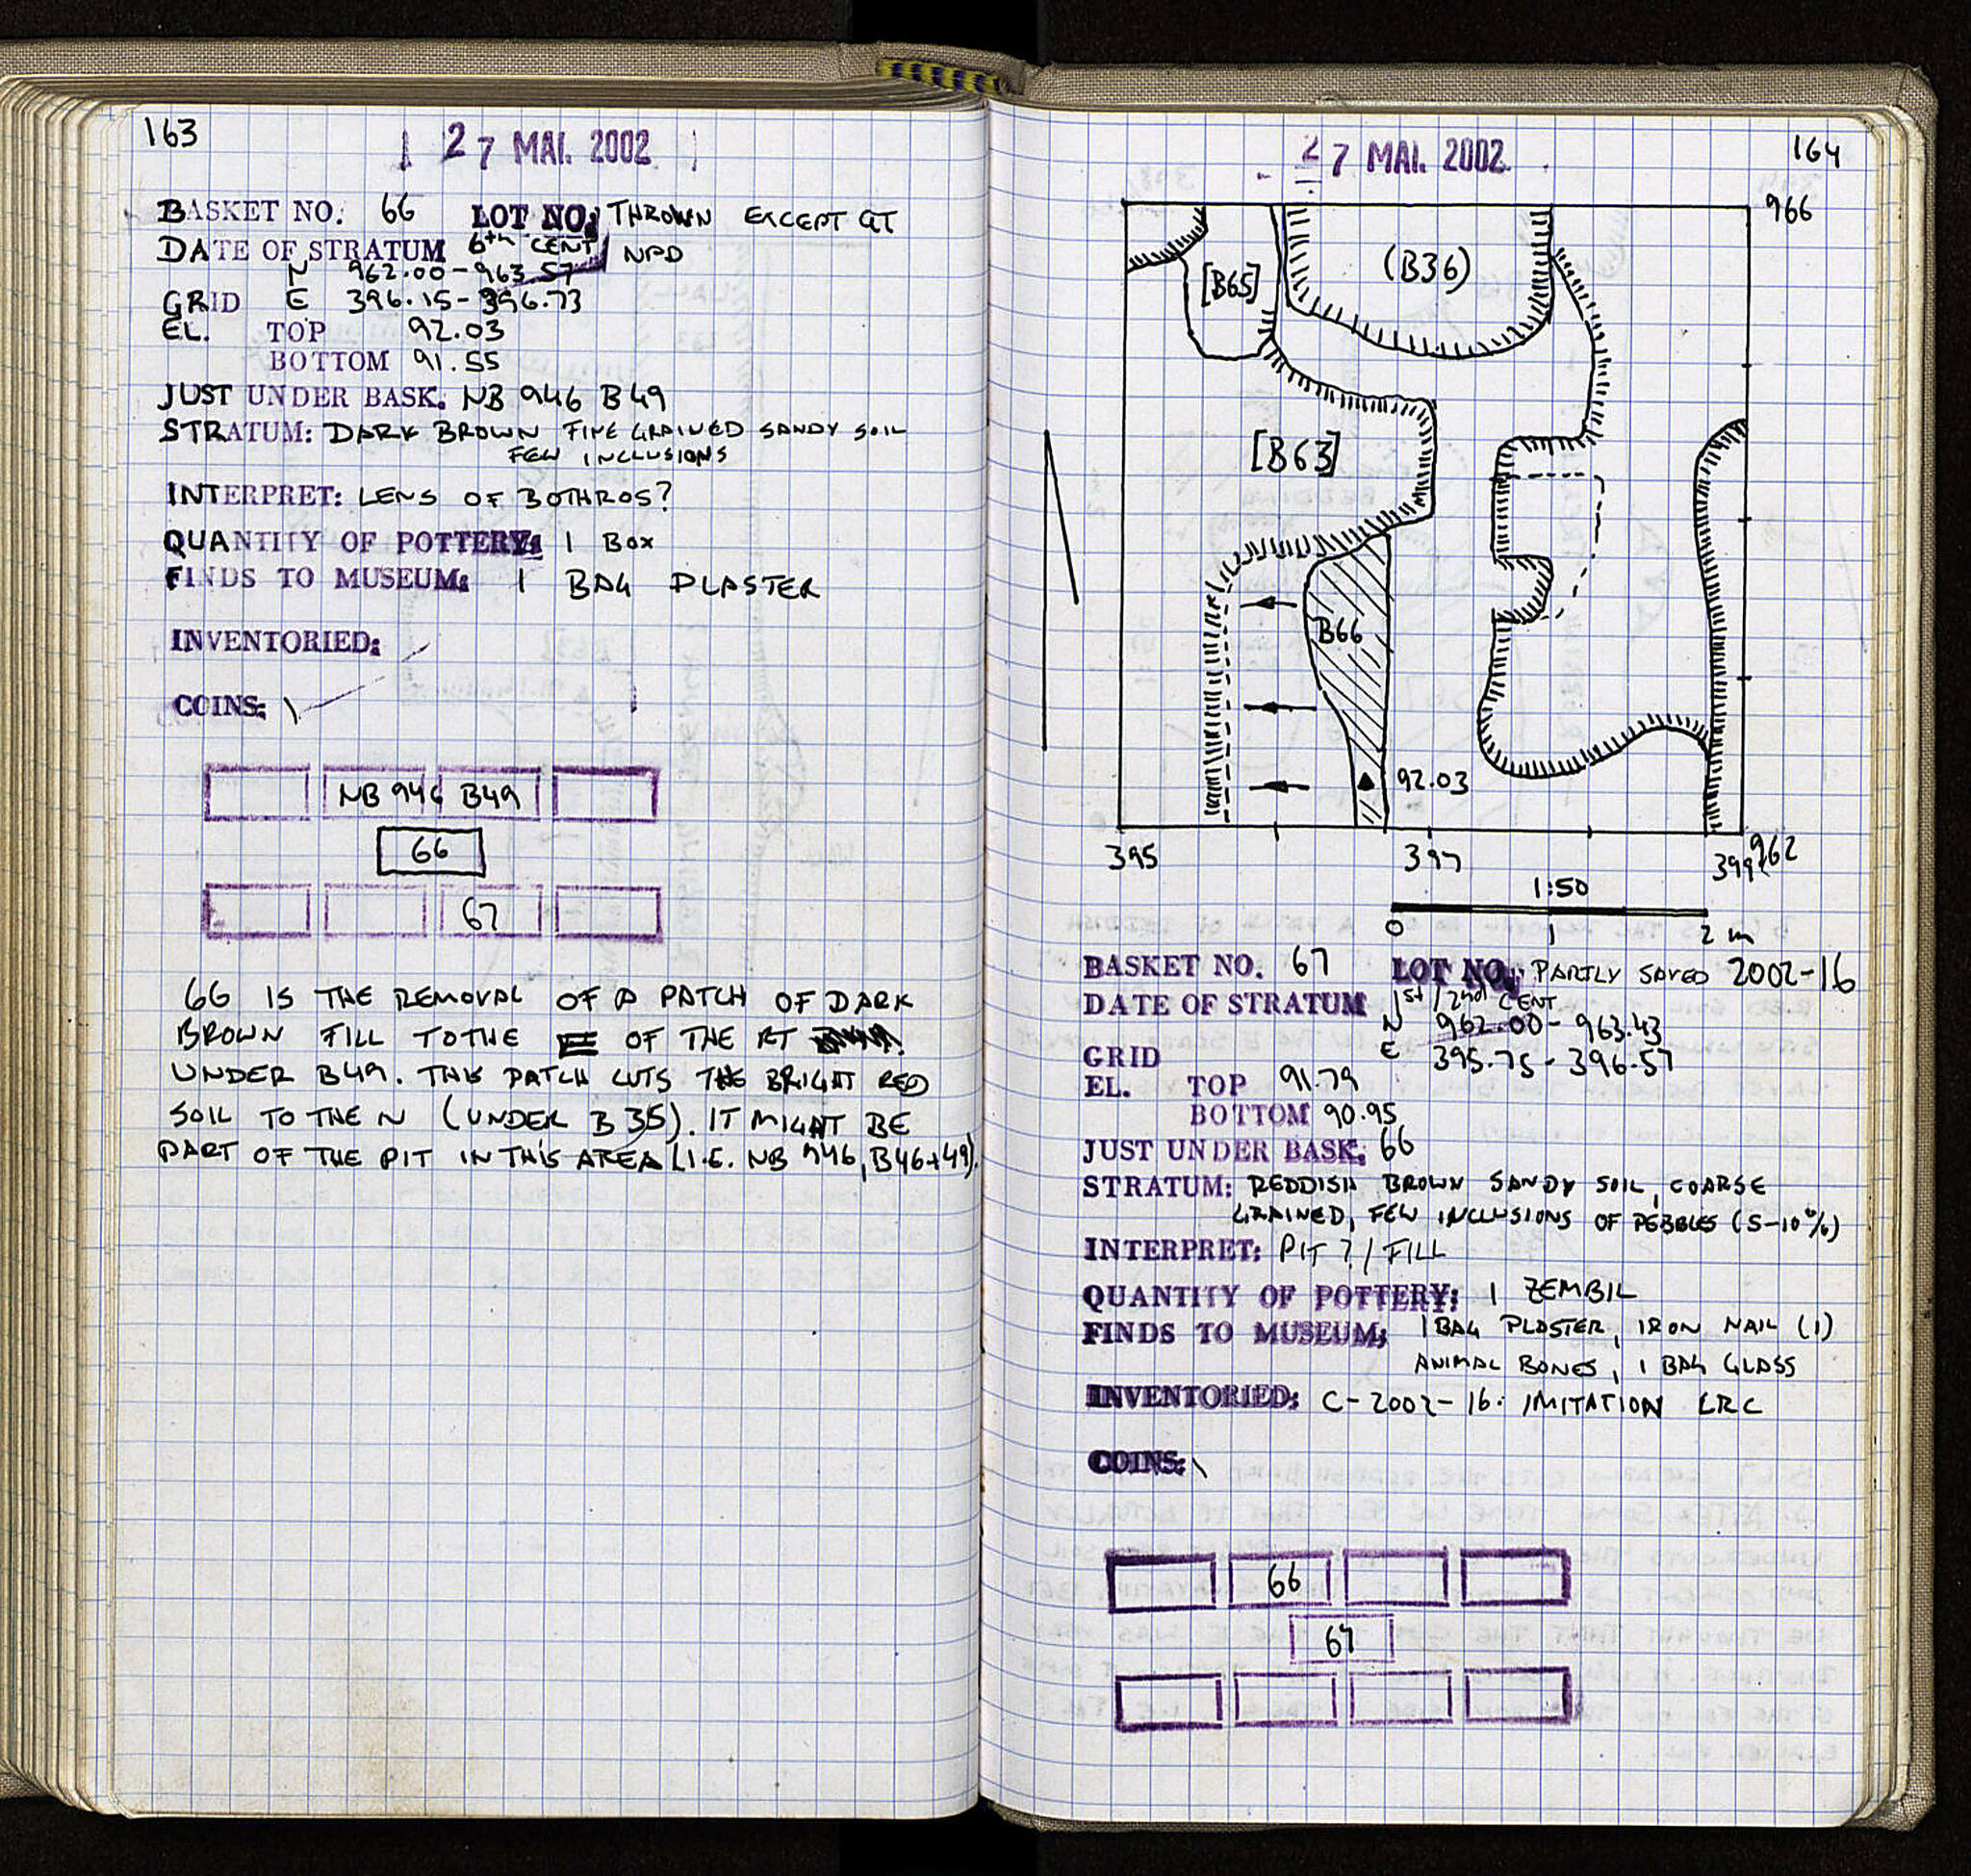 163
27 MAI. 2002
BASKET NO. 66 LOT NO. THROWN EXCEPT GT
DATE OF STRATUM 6th CENT / NPD
N 962.00 - 963.57
GRID E 396.15 - 396.73
EL. TOP 92.03
BOTTOM 91.55
JUST UNDER BASK. NB 946 B49
STRATUM: DARK BROWN FINE GRAINED SANDY SOIL
FEW INCLUSIONS
INTERPRET: LENS OF BOTHROS?
QUANTITY OF POTTERY: 1 BOX
FINDS TO MUSEUM: 1 BAG PLASTER
INVENTORIED:
COINS: \
NB 946 B49
66
67
66 IS THE REMOVAL OF A PATCH OF DARK
BROWN FILL TO THE E OF THE RT
UNDER B49. THIS PATCH CUTS THE BRIGHT RED
SOIL TO THE N (UNDER B35). IT MIGHT BE
PART OF THE PIT IN THIS AREA (I.E. NB 946, B46+49).
27 MAI. 2002
164
966
[B65]
(B36)
[B63]
B66
92.03
395
397
399
962
1:50
0 1 2 m
BASKET NO. 67 LOT NO. PARTLY SAVED 2002-16
DATE OF STRATUM 1st / 2nd CENT.
N 962.00 - 963.43
GRID E 395.75 - 396.57
EL. TOP 91.79
BOTTOM 90.95
JUST UNDER BASK. 66
STRATUM: REDDISH BROWN SANDY SOIL, COARSE
GRAINED, FEW INCLUSIONS OF PEBBLES (5-10%)
INTERPRET: PIT? / FILL
QUANTITY OF POTTERY: 1 ZEMBIL
FINDS TO MUSEUM: 1 BAG PLASTER, IRON NAIL (1)
ANIMAL BONES, 1 BAG GLASS
INVENTORIED: C-2002-16: IMITATION LRC
COINS: \
66
67